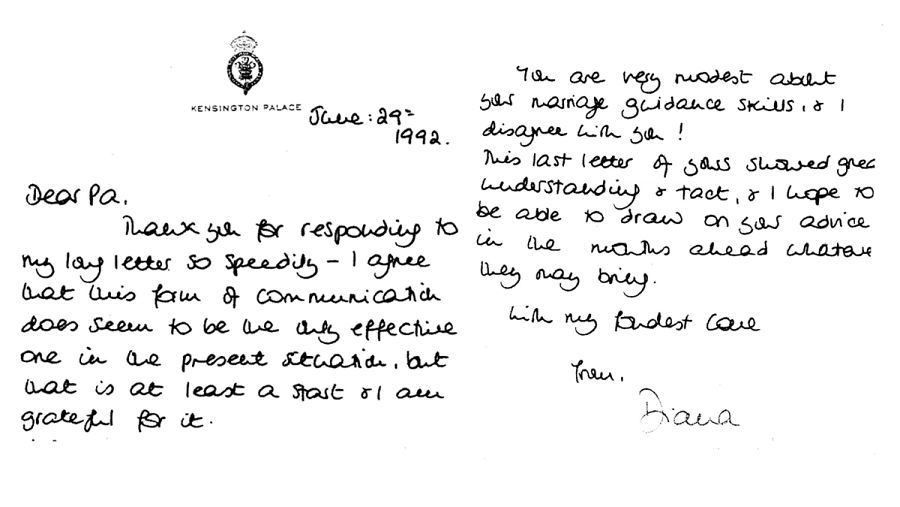 KENSINGTON PALACE
June: 29th
1992.
Dear Pa.
Thank you for responding to
my long letter so speedily – I agree
that this form of communication
does seem to be the only effective
one in the present situation, but
that is at least a start & I am
grateful for it.
You are very modest about
your marriage guidance skills, & I
disagree with you!
This last letter of yours showed great
understanding & tact, & I hope to
be able to draw on your advice
in the months ahead whatever
they may bring.
With my fondest love
from,
Diana